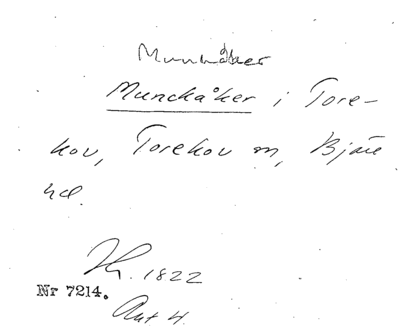 Munkåker
Munckåker i Tore-
kov, Torekov sn, Bjäre
hd.
1822
Nr 7214.
Akt 4.